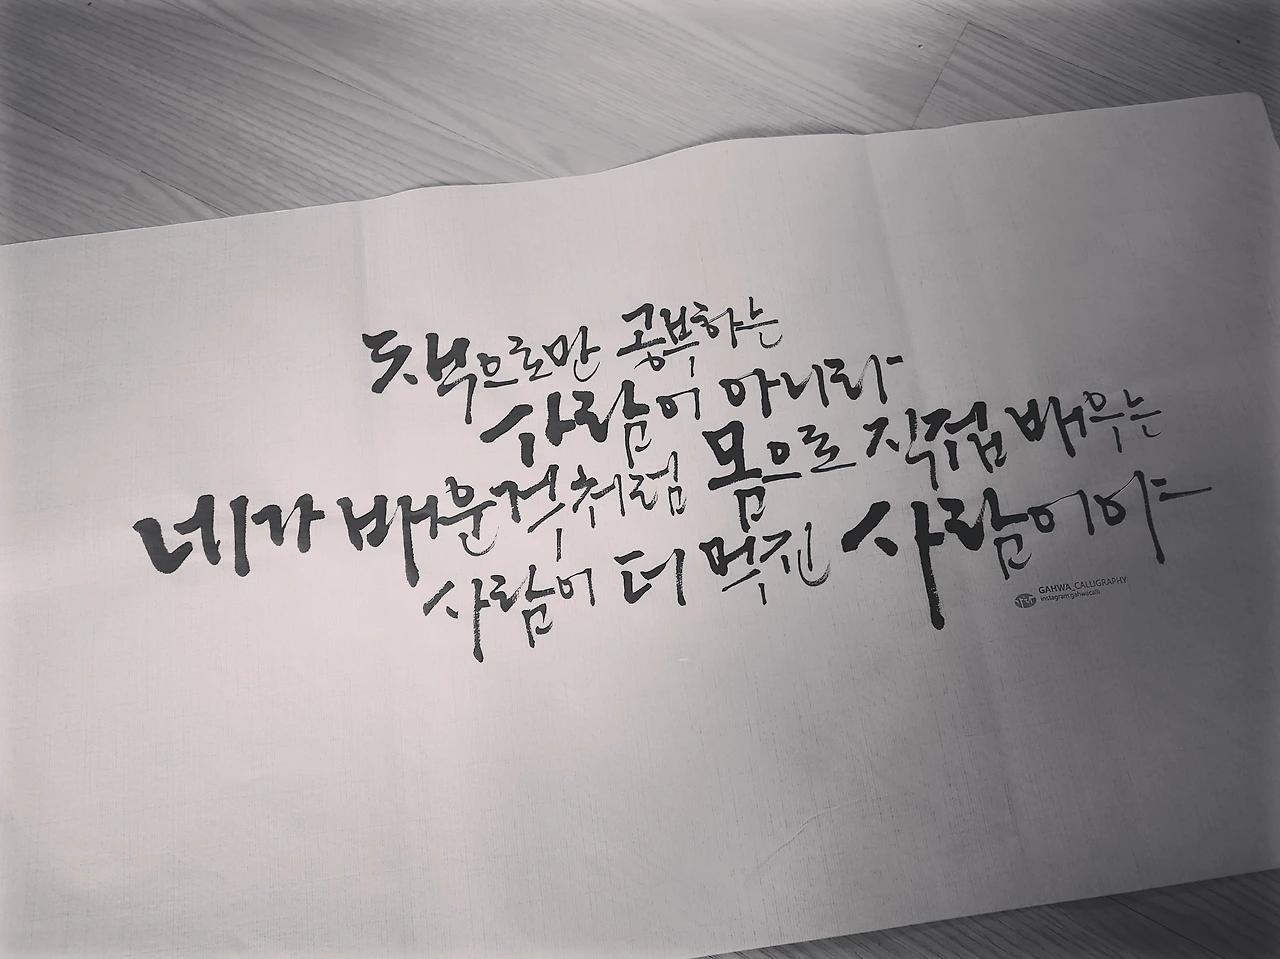 책으로만 공부하는
사람이 아니라
네가 배운것처럼 몸으로 직접 배우는
사람이 더 멋진 사람이야
GAHWA_CALLIGRAPHY
instagram:gahwacalli